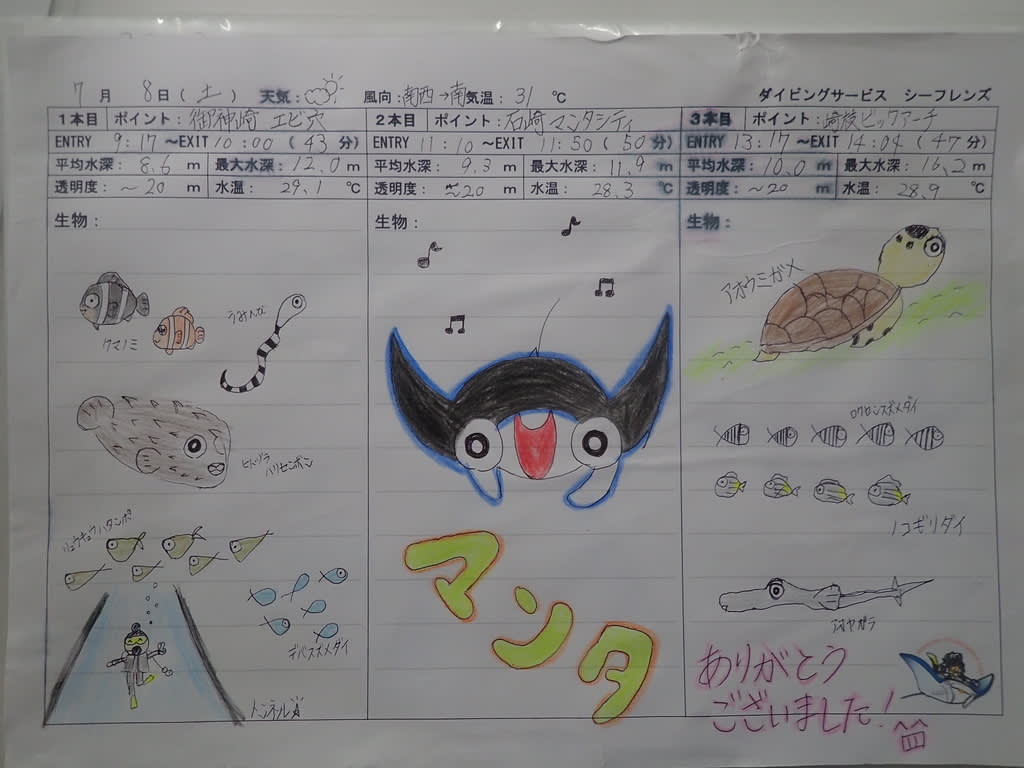 7月 8日(土) 天気: 風向:南西→南 気温: 31 ℃ ダイビングサービス シーフレンズ
1本目 ポイント:御神崎 エビ穴
ENTRY 9:17 ~EXIT 10:00 (43 分)
平均水深: 8.6 m 最大水深: 12.0 m
透明度: ~20 m 水温: 29.1 ℃
生物:
クマノミ
うみへび
ヒトヅラハリセンボン
リュウキュウハタンポ
デバスズメダイ
トンネル☆
2本目 ポイント:石崎 マンタシティ
ENTRY 11:10 ~EXIT 11:50 (50 分)
平均水深: 9.3 m 最大水深: 11.9 m
透明度: ~20 m 水温: 28.3 ℃
生物:
マンタ
3本目 ポイント:崎枝ビッグアーチ
ENTRY 13:17 ~EXIT 14:04 (47 分)
平均水深: 10.0 m 最大水深: 16.2 m
透明度: ~20 m 水温: 28.9 ℃
生物:
アオウミガメ
ロクセンスズメダイ
ノコギリダイ
アオヤガラ
ありがとう
ございました!